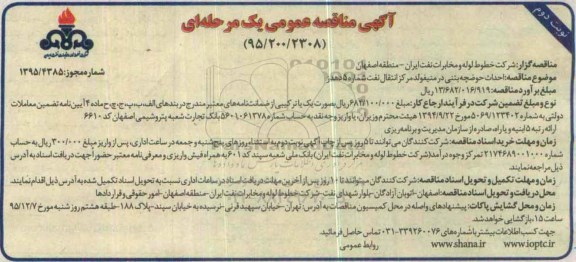 نوبت دوم
آگهی مناقصه عمومی یک مرحله‌ای
(۹۵/۲۰۰/۲۳۰۸)
شماره مجوز: ۱۳۹۵/۴۳۸۵
مناقصه گزار: شرکت خطوط لوله و مخابرات نفت ایران - منطقه اصفهان
موضوع مناقصه: احداث حوضچه بتنی در منیفولد مرکز انتقال نفت شماره ۵ نعدر
مبلغ برآورد مناقصه: ۱۳/۶۸۲/۰۱۶/۹۱۹ ریال
نوع و مبلغ تضمین شرکت در فرآیند ارجاع کار: مبلغ ۶۸۴/۱۰۰/۰۰۰ ریال بصورت یک یا ترکیبی از ضمانت‌نامه های معتبر مندرج در بندهای الف، ب، پ، ج، چ، ح ماده ۴ آیین نامه تضمین معاملات
دولتی به شماره ۱۲۳۴۰۲/ت۵۰۶۹ مورخ ۱۳۹۴/۹/۲۲ هیئت محترم وزیران یا واریز وجه نقد به حساب شماره ۵۶۰۱۰۶۱۳۷۸ بانک تجارت شعبه پتروشیمی اصفهان کد ۶۶۱۰
ارائه رتبه ۵ ابنیه و یا راه، صادره از سازمان مدیریت و برنامه ریزی
زمان و مهلت خرید اسناد مناقصه: شرکت کنندگان می توانند تا ۵ روز پس از چاپ آگهی نوبت دوم به استثناء روزهای پنج شنبه و جمعه در ساعات اداری، پس از واریز مبلغ ۳۰۰/۰۰۰ ریال به حساب
شماره ۲۱۷۴۶۸۹۰۰۱۰۰۰ تمرکز وجوه درآمد (شرکت خطوط لوله و مخابرات نفت ایران) بانک ملی شعبه سپند کد ۶۰۱ به همراه فیش واریزی و معرفی نامه معتبر حضوراً جهت دریافت اسناد به آدرس
ذیل مراجعه نمایند.
زمان و مهلت تکمیل و تحویل اسناد مناقصه: شرکت کنندگان میتوانند تا ۱۰ روز پس از آخرین مهلت دریافت اسناد در ساعات اداری نسبت به تحویل اسناد تکمیل شده به آدرس ذیل اقدام نمایند.
محل دریافت و تحویل اسناد مناقصه: اصفهان - اتوبان آزادگان - بلوار شهدای نفت - شرکت خطوط لوله و مخابرات نفت ایران - منطقه اصفهان - امور حقوقی و قراردادها
زمان و محل گشایش پاکات: پیشنهادهای واصله در محل کمیسیون مناقصات به آدرس: تهران - خیابان سپهبد قرنی - نرسیده به خیابان سپند - پلاک ۱۸۸ - طبقه هشتم روز شنبه مورخ ۹۵/۱۲/۷
ساعت ۱۵، بازگشایی خواهد شد.
جهت کسب اطلاعات بیشتر با شماره های ۳۳۹۲۶۰۰۷۶-۰۳۱ تماس حاصل فرمائید.
www.shana.ir www.ioptc.ir
روابط عمومی